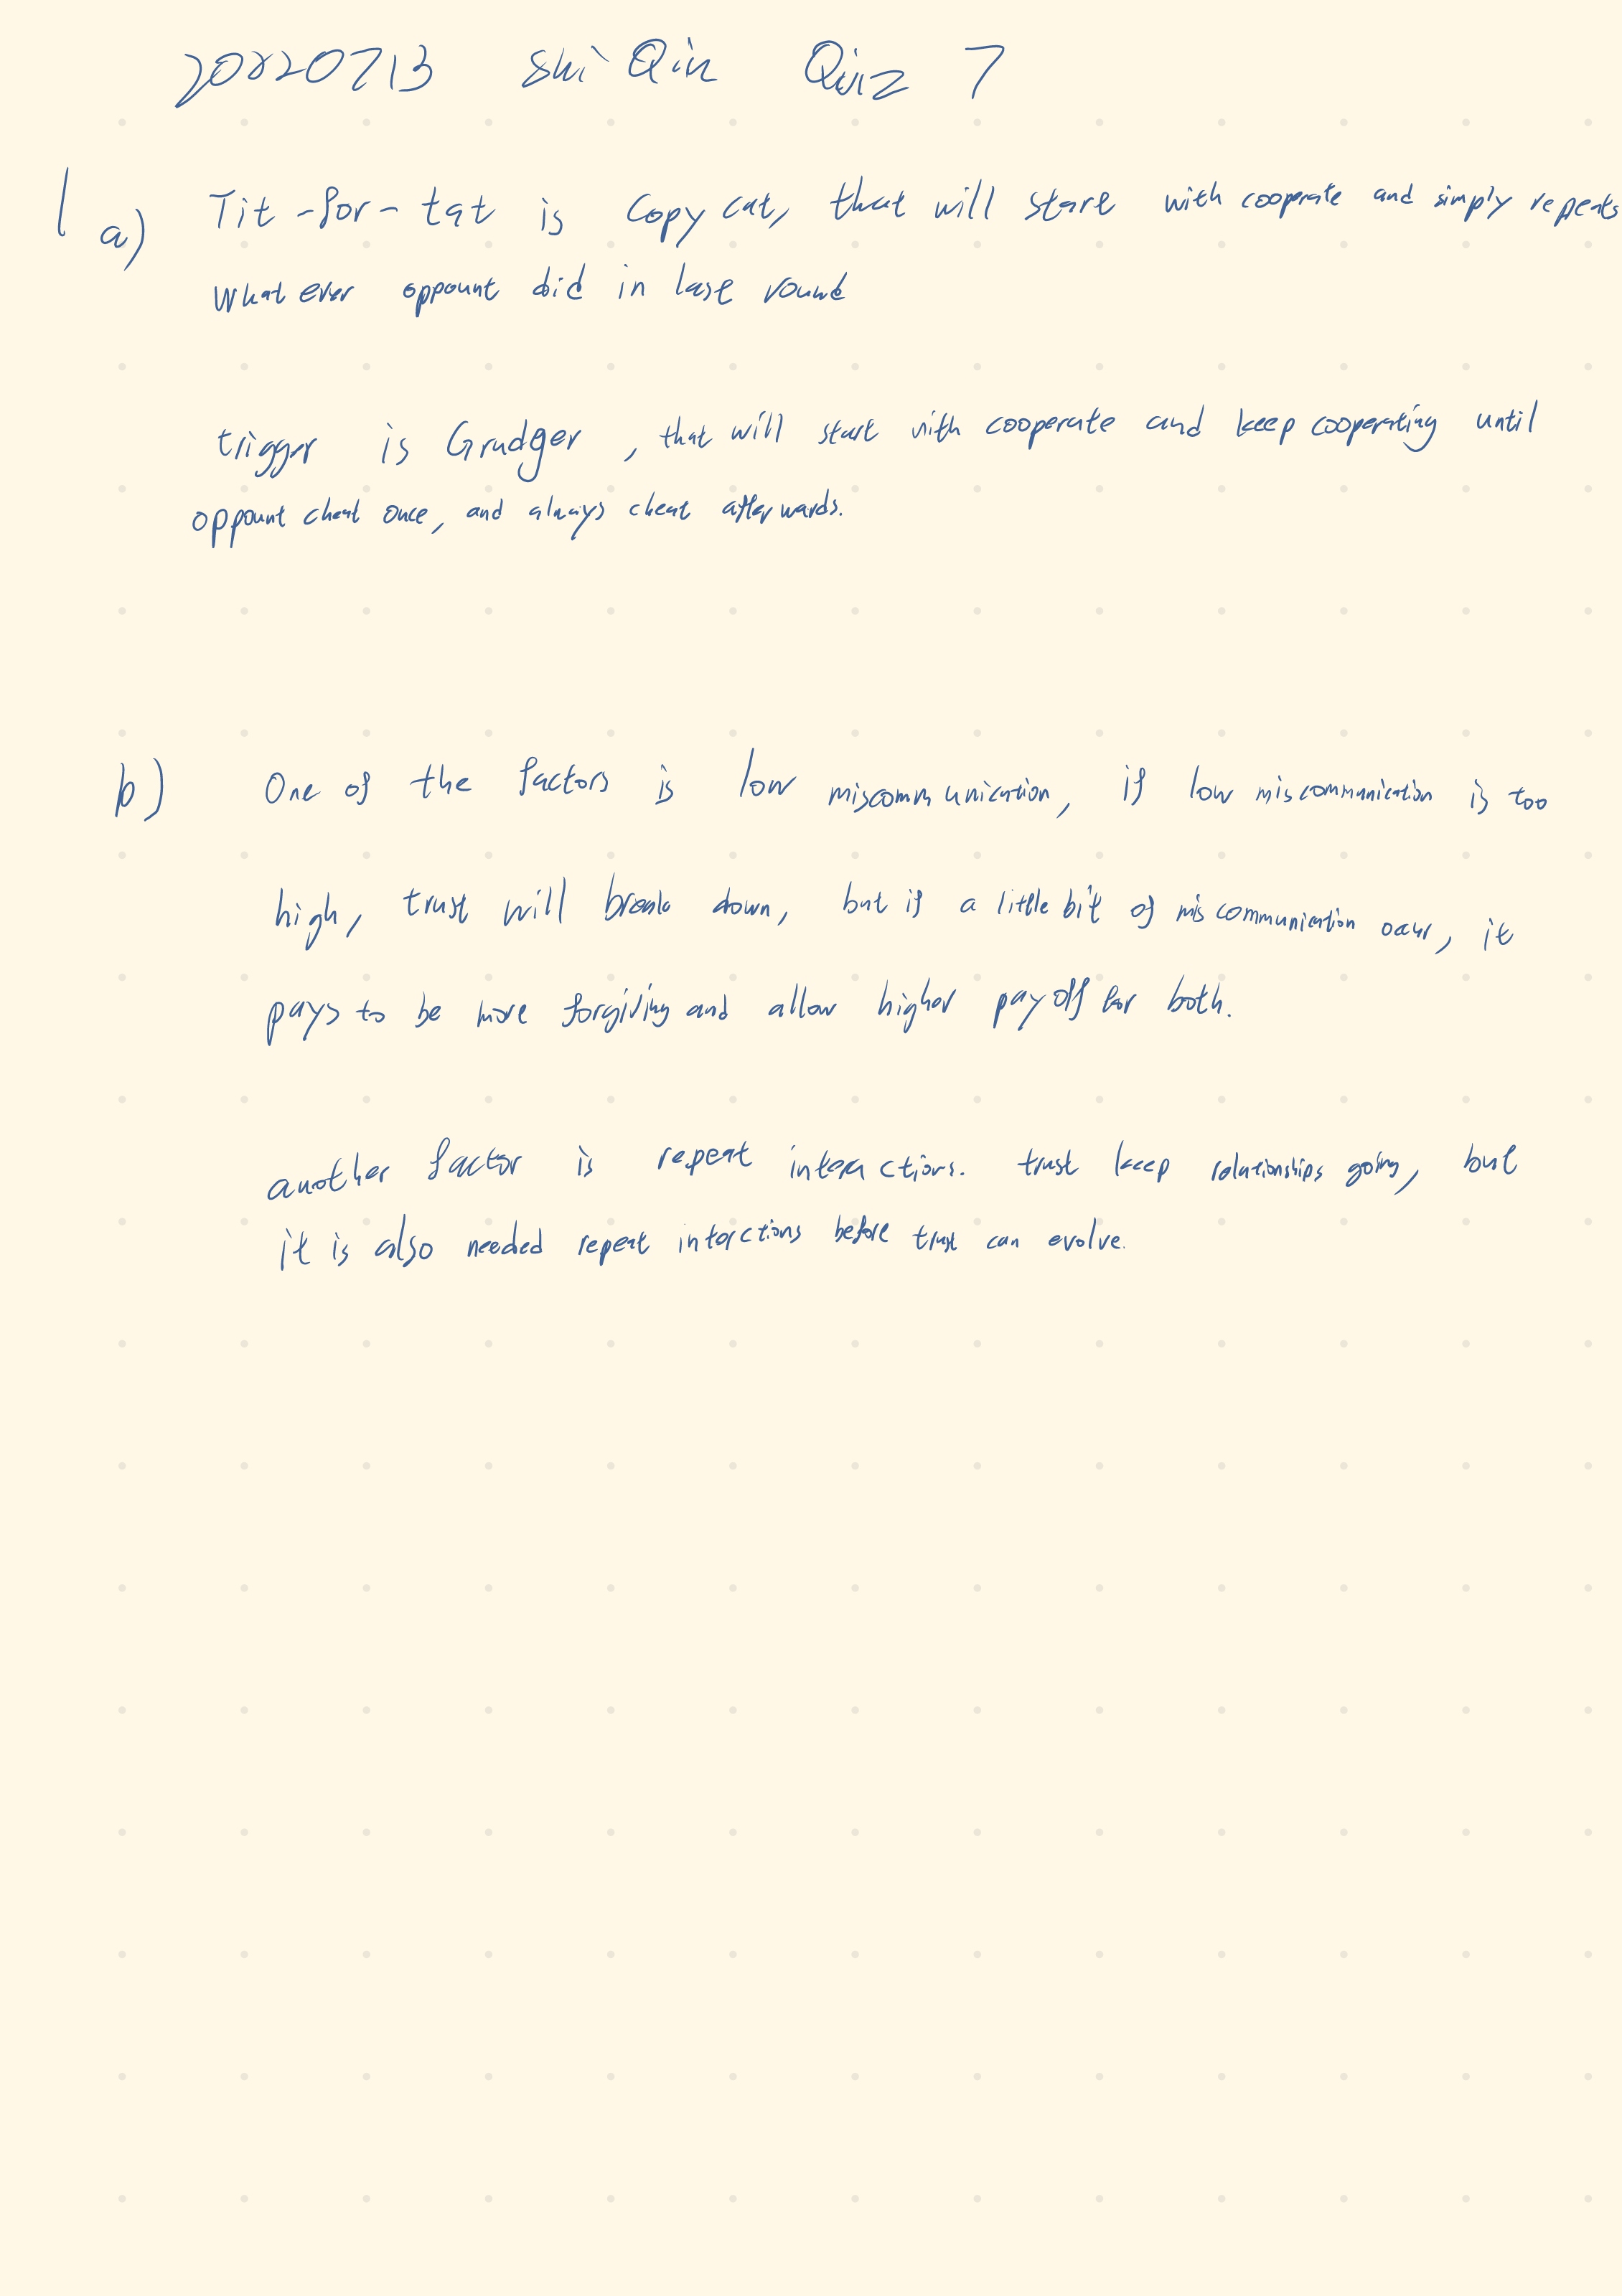 20820713 Shi Qin Quiz 7
1 a) Tit-for-tat is Copy cat, that will start with cooperate and simply repeats
what ever oppount did in last round
trigger is Grudger, that will start with cooperate and keep cooperating until
oppount cheat once, and always cheat afterwards.
b) One of the factors is low miscommunication, if low miscommunication is too
high, trust will break down, but if a little bit of miscommunication occur, it
pays to be more forgiving and allow higher payoff for both.
another factor is repeat interactions. trust keep relationships going, but
it is also needed repeat interctions before trust can evolve.